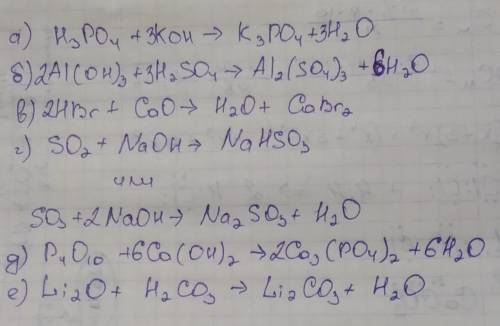 а) H₃PO₄ + 3KOH → K₃PO₄ + 3H₂O
б) 2Al(OH)₃ + 3H₂SO₄ → Al₂(SO₄)₃ + 6H₂O
в) 2HBr + CaO → H₂O + CaBr₂
г) SO₂ + NaOH → NaHSO₃
или
SO₃ + 2NaOH → Na₂SO₃ + H₂O
д) P₄O₁₀ + 6Ca(OH)₂ → 2Ca₃(PO₄)₂ + 6H₂O
е) Li₂O + H₂CO₃ → Li₂CO₃ + H₂O